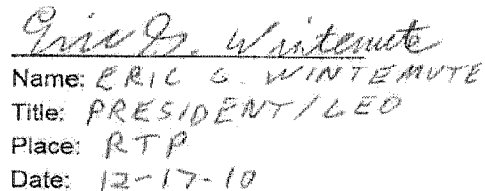 Eric G. Wintemute
Name: ERIC G. WINTEMUTE
Title: PRESIDENT/CEO
Place: RTP
Date: 12-17-10